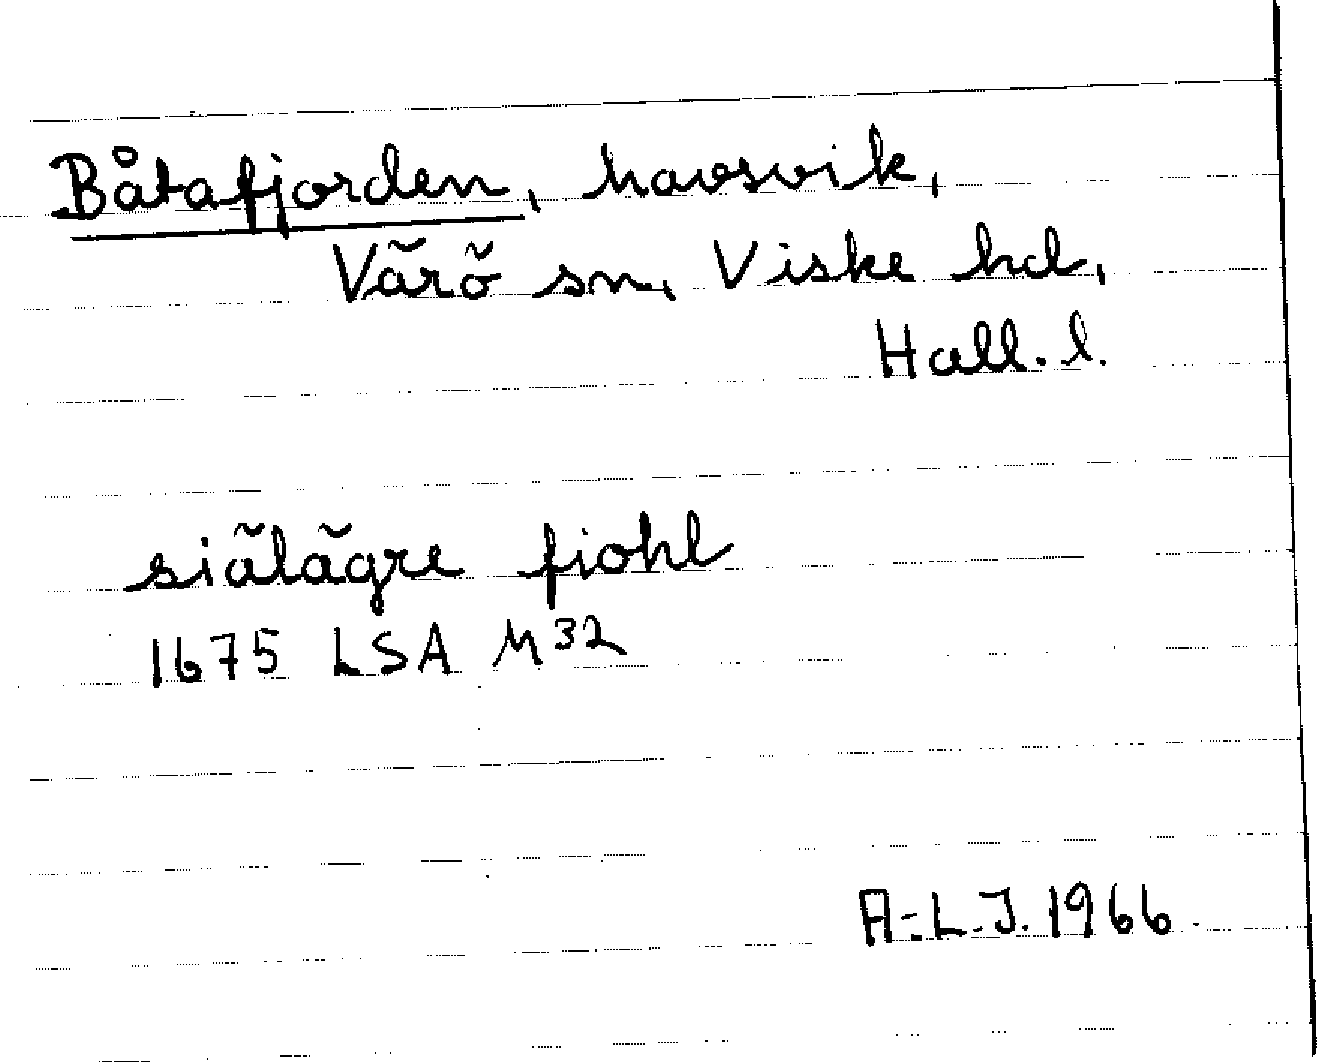 Båtafjorden, havsvik,
Värö sn, Viske hd,
Hall. l.
siälägre fiohl
1675 LSA M32
A-L.J. 1966.